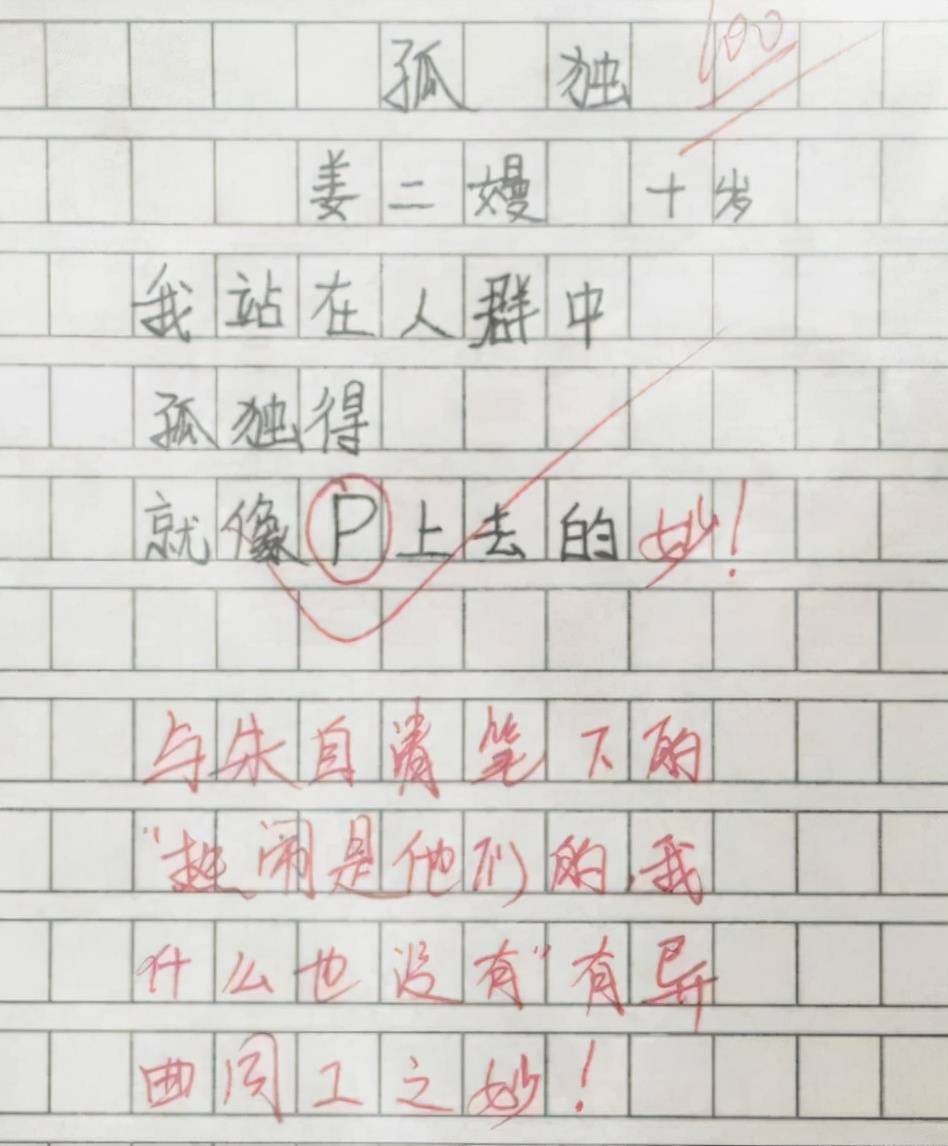 孤独 100
姜二嫚 十岁
我站在人群中
孤独得
就像P上去的 妙!
与朱自清笔下的
“热闹是他们的,我
什么也没有”有异
曲同工之妙!